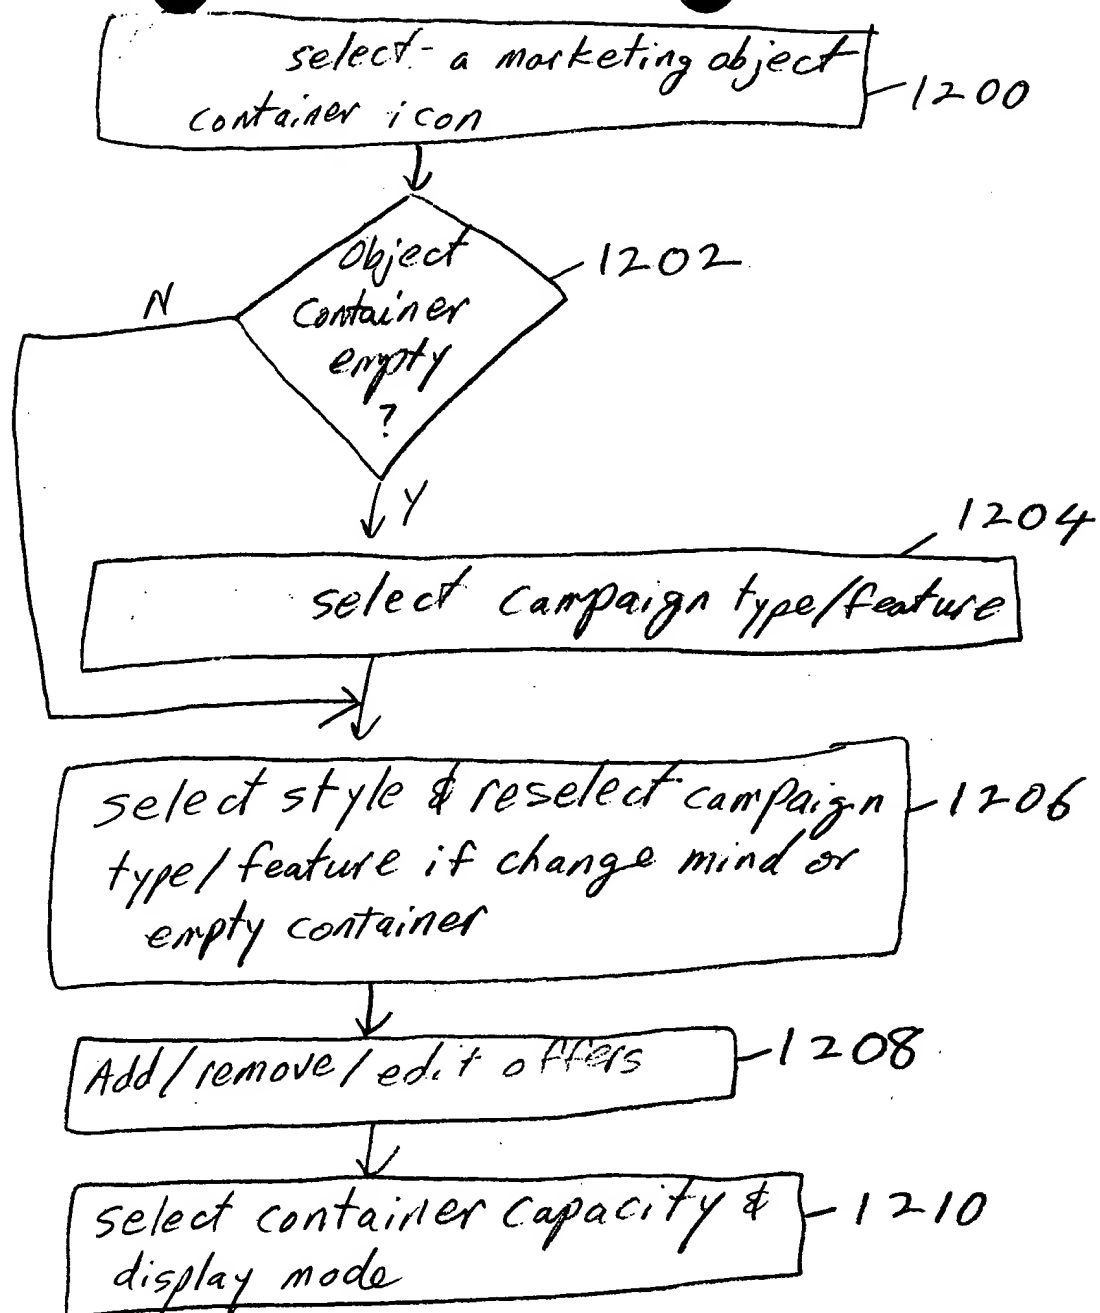 select a marketing object
container icon
1200
Object
Container
empty
?
1202
N
Y
1204
select Campaign type/feature
select style & reselect campaign
type/feature if change mind or
empty container
1206
Add/remove/edit offers
1208
select container capacity &
display mode
1210